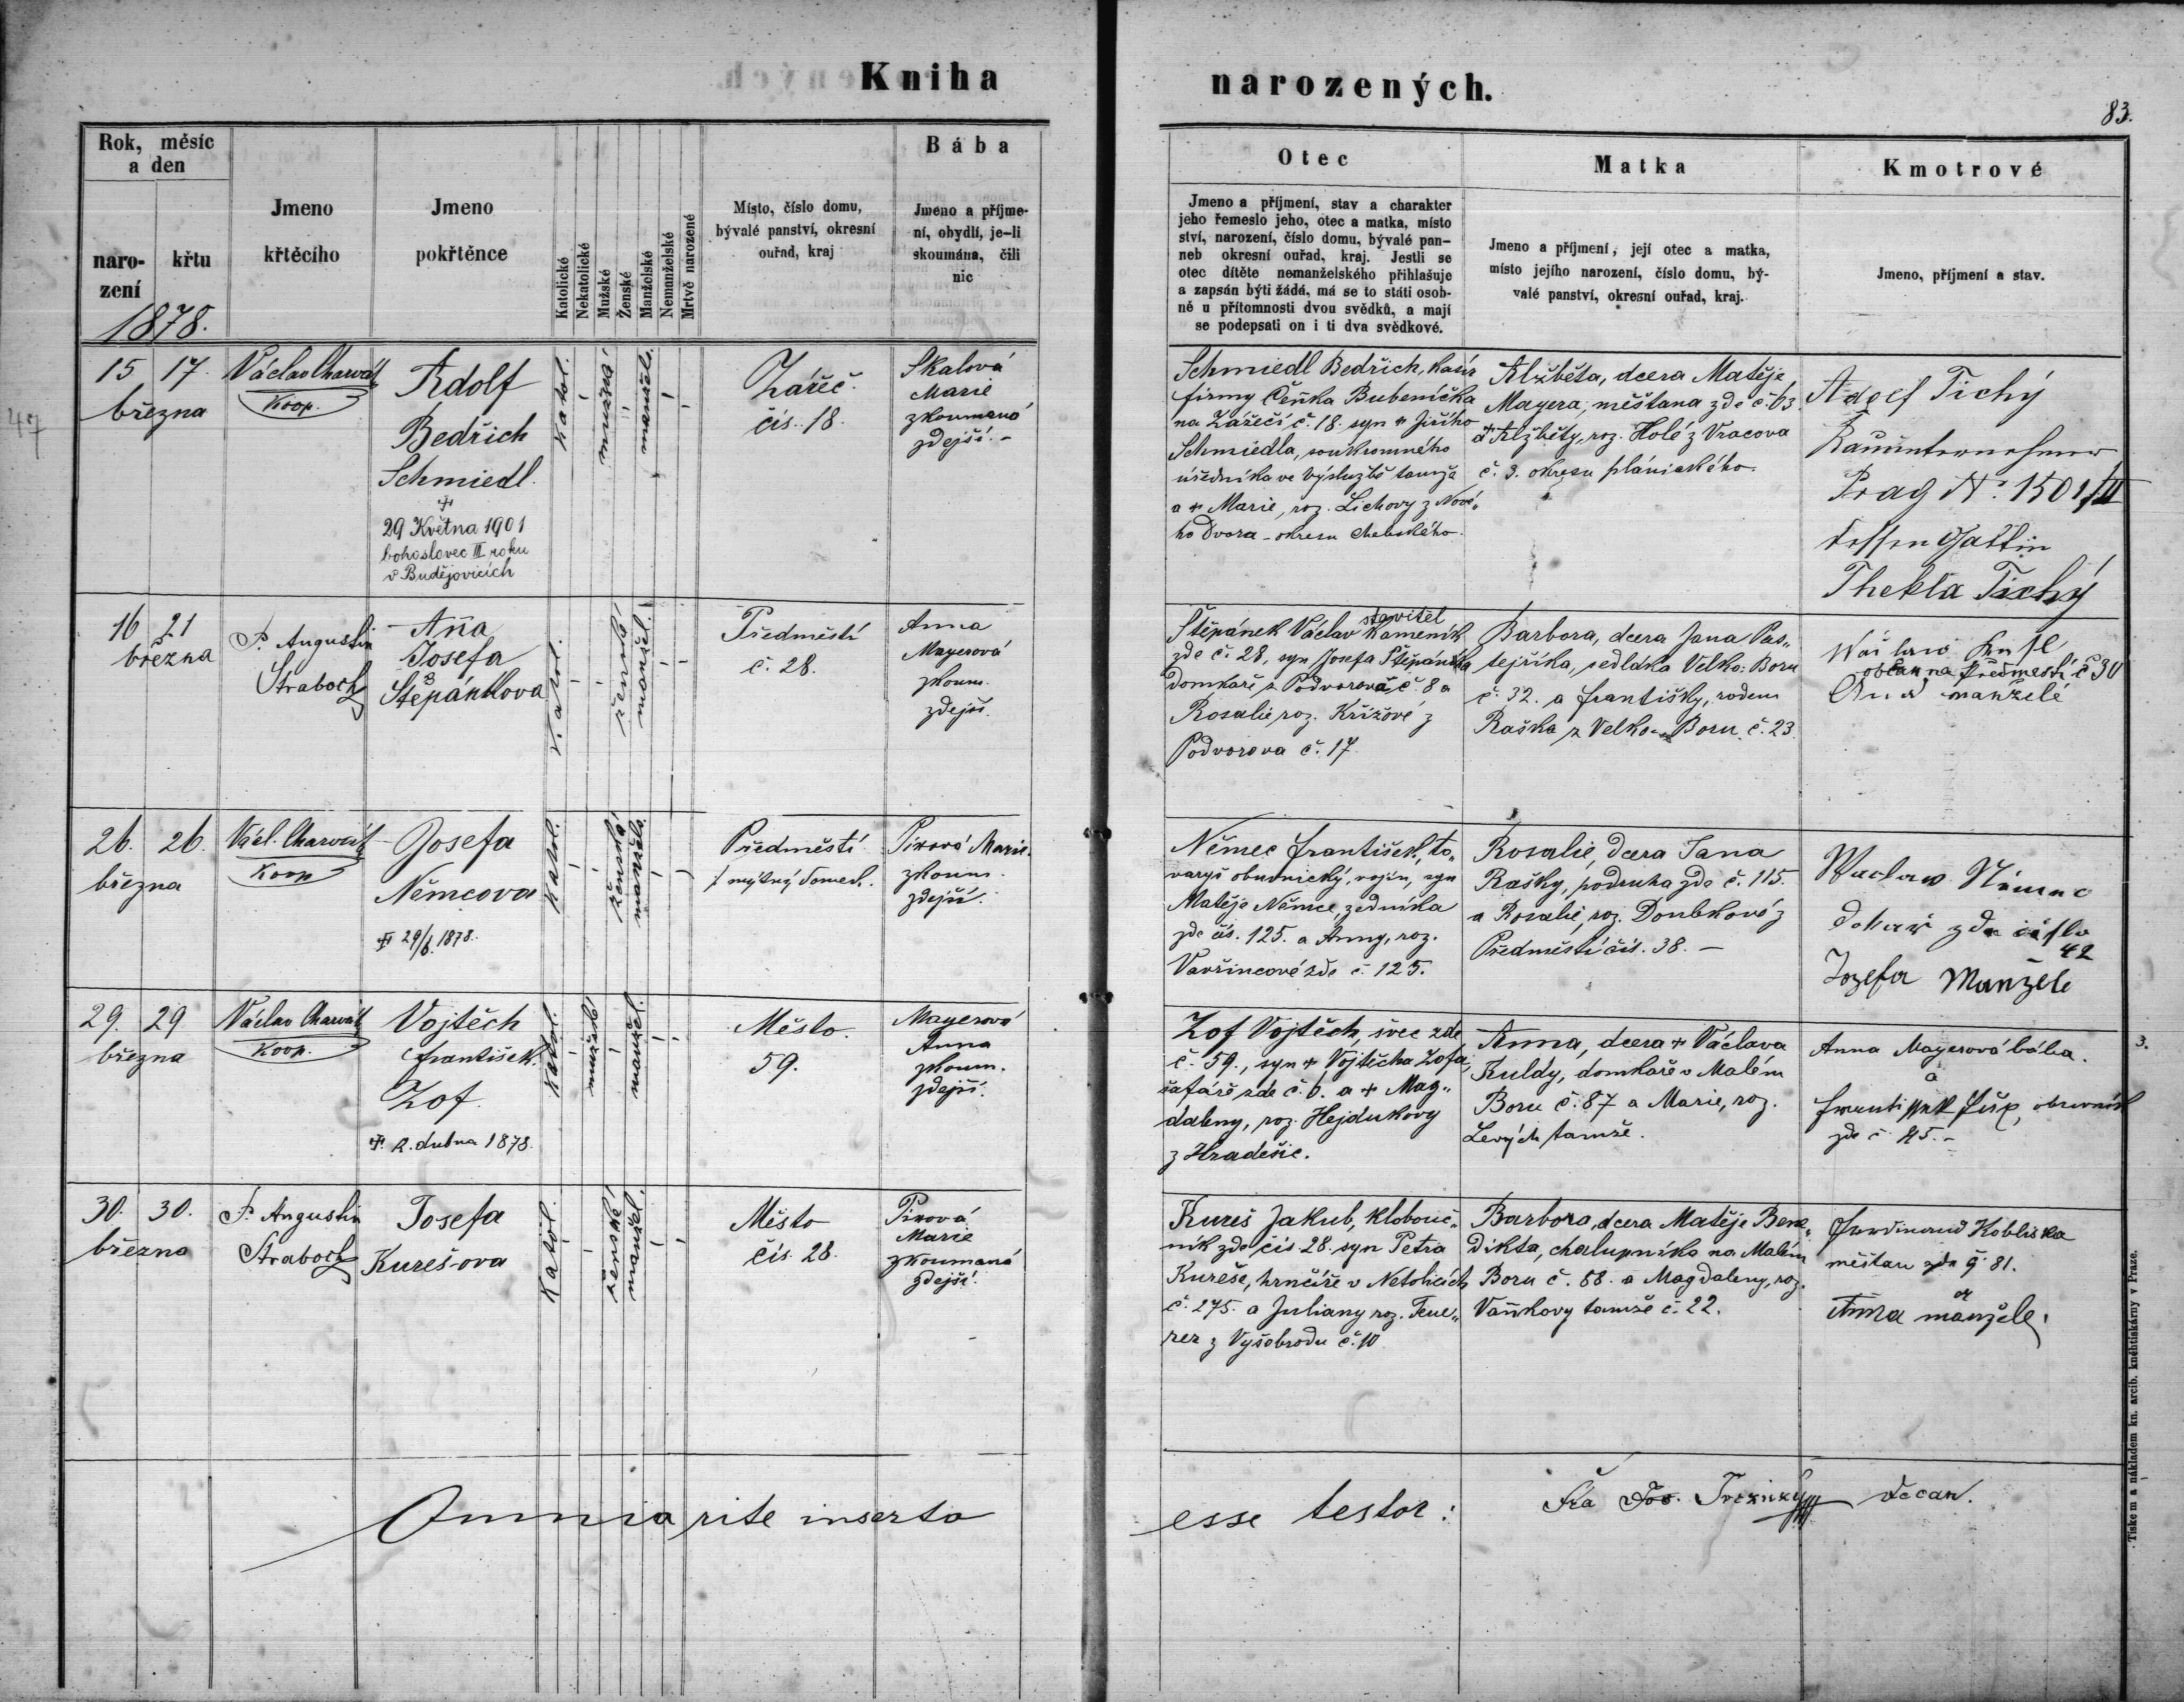 Kniha
narozených.
83.
Rok, měsíc
a den
naro-
zení
křtu
1878.
Jmeno
křtěcího
Jmeno
pokřtěnce
Katolické
Nekatolické
Mužské
Ženské
Manželské
Nemanželské
Mrtvě narozené
Místo, číslo domu,
bývalé panství, okresní
ouřad, kraj
Bába
Jmeno a příjme-
ní, obydlí, je-li
skoumána, čili
nic
Otec
Jmeno a příjmení, stav a charakter
jeho řemeslo jeho, otec a matka, místo
ství, narození, číslo domu, bývalé pan-
neb okresní ouřad, kraj. Jestli se
otec dítěte nemanželského přihlašuje
a zapsán býti žádá, má se to státi osob-
ně u přítomnosti dvou svědků, a mají
se podepsati on i ti dva svědkové.
Matka
Jmeno a příjmení, její otec a matka,
místo jejího narození, číslo domu, bý-
valé panství, okresní ouřad, kraj.
Kmotrové
Jmeno, příjmení a stav.
47
15 17.
března
Václav Charvát
Koop.
Adolf
Bedřich
Schmiedl.
+
29 Května 1901
bohoslovec III roku
v Budějovicích
Katol.
mužské
manžels.
Zářeč.
čís. 18.
Skalová
Marie
zkoumaná
zdejší. –
Schmiedl Bedřich, kasír
firmy Čeňka Bubeníčka
na Zářečí č. 18. syn + Jiřího
Schmiedla, soukromného
úředníka ve výslužbě tamže
a + Marie, roz. Lichovy z Nové-
ho Dvora - okresu Chebského.
Alžběta, dcera Matěje
Mayera, měštana zde č. 63.
a Alžběty, roz. Holé z Vracova
č. 3. okresu plánického.
Adolf Tichý
Bauunternehmer
Prag No. 1501/II
dessen Gattin
Thekla Tichý
16 21
března
P. Augustin
Straboch
Aña
Josefa
Štěpánkova
Katol.
ženské
manžel.
Předměstí
č. 28.
Anna
Mayerová
zkoum.
zdejší.
stavitel
Štěpánek Václav Kameník
zde č. 28, syn Josefa Štěpánka
domkaře z Podvorova č. 8 a
Rosalie roz. Křížové z
Podvorova č. 17.
Barbora, dcera Jana Pas-
tejříka, sedláka Velko: Boru
č. 32. a Františky, rodem
Raška z Velko- Boru č. 23.
občan na předmestí č 30
manželé
26. 26.
března
Václ. Charvát
Koop
Josefa
Němcova
+ 29/6. 1878.
Katol.
ženské
manžels.
Předměstí
mýtný domek.
Pixová Marie.
zkoum.
zdejší.
Němec František, to-
varyš obuvnický, vojín, syn
Matěje Němce, zedníka
zde čís. 125. a Anny, roz.
Vavřincové zde č. 125.
Rosalie, dcera Jana
Rašky, podruha zde č. 115.
a Rosalie, roz. Doubkové z
Předměstí čís. 38. –
Waclaw Němec
zde číslo
42
Jozefa Manžele
29. 29
března
Václav Charvát
Koop.
Vojtěch
František
Zof.
+ 2. dubna 1878.
Katol.
mužské
manžel.
Město.
59.
Mayerová
Anna
zkoum.
zdejší.
Zof Vojtěch, švec zde
č. 59., syn + Vojtěcha Zofa,
šafáře zde č. 6. a + Mag-
daleny, roz. Hejdukovy
z Hradešic.
Anna, dcera + Václava
Kuldy, domkaře v Malém
Boru č. 87 a Marie, roz.
Levých tamže.
Anna Mayerová bába.
a
obuvník
zde č. 45. –
3.
30. 30.
března
P. Augustin
Straboch
Josefa
Kureš-ova
Katol.
ženské
manžel.
Město
čís. 28.
Pixová
Marie
zkoumaná
zdejší.
Kureš Jakub, klobouč-
ník zde čis 28. syn Petra
Kureše, hrnčíře v Netolicích
č. 275. a Juliany roz. Feue-
rer z Vyšebrodu č. 10
Barbora, dcera Matěje Bene-
dikta, chalupníka na Malém
Boru č. 58. a Magdaleny, roz.
Vaňkovy tamže č. 22.
Ferdinand Kobliska
měštan zde č. 81.
a
Anna manžele.
Omnia rite inserta
esse testor:
decan.
Tiskem a nákladem kn. arcib. kněhtiskárny v Praze.